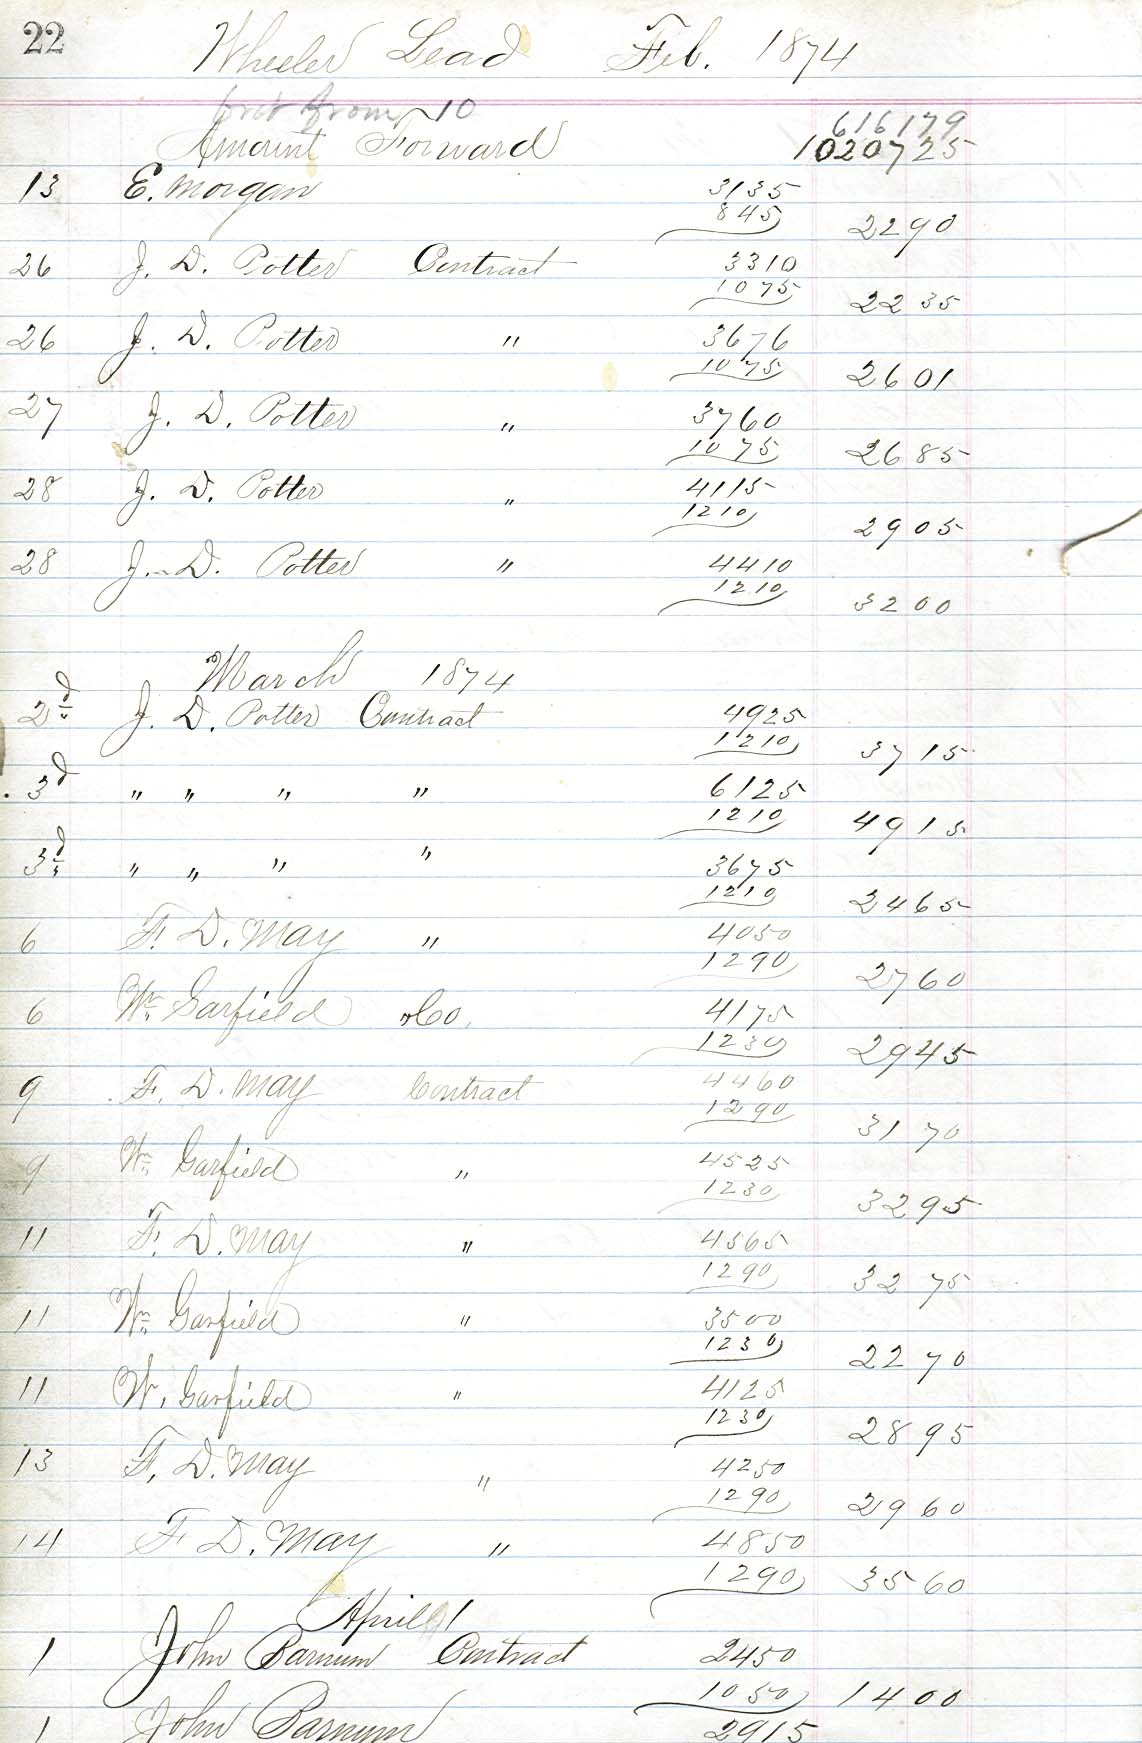 22
Wheeler Lead Feb. 1874
from 10
616179
Amount Forward 1020725
13 E. Morgan 3135
845 2290
26 J. D. Potter Contract 3310
1075 2235
26 J. D. Potter " 3676
1075 2601
27 J. D. Potter " 3760
1075 2685
28 J. D. Potter " 4115
1210 2905
28 J. D. Potter " 4410
1210 3200
March 1874
2d J. D. Potter Contract 4925
1210 3715
3d " " " " 6125
1210 4915
3d " " " " 3675
1210 2465
6 F. D. May " 4050
1290 2760
6 Wm Garfield & Co. 4175
1230 2945
9 F. D. May Contract 4460
1290 3170
9 Wm Garfield " 4525
1230 3295
11 F. D. May " 4565
1290 3275
11 Wm Garfield " 3500
1230 2270
11 W. Garfield " 4125
1230 2895
13 F. D. May " 4250
1290 2960
14 F D. May " 4850
1290 3560
April 1
1 John Barnum Contract 2450
1050 1400
1 John Barnum 2915